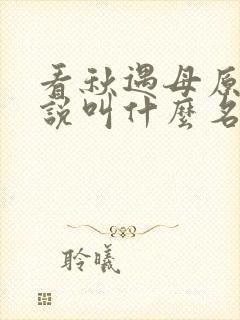 看秋遇母原
說叫什麼名
聆曦